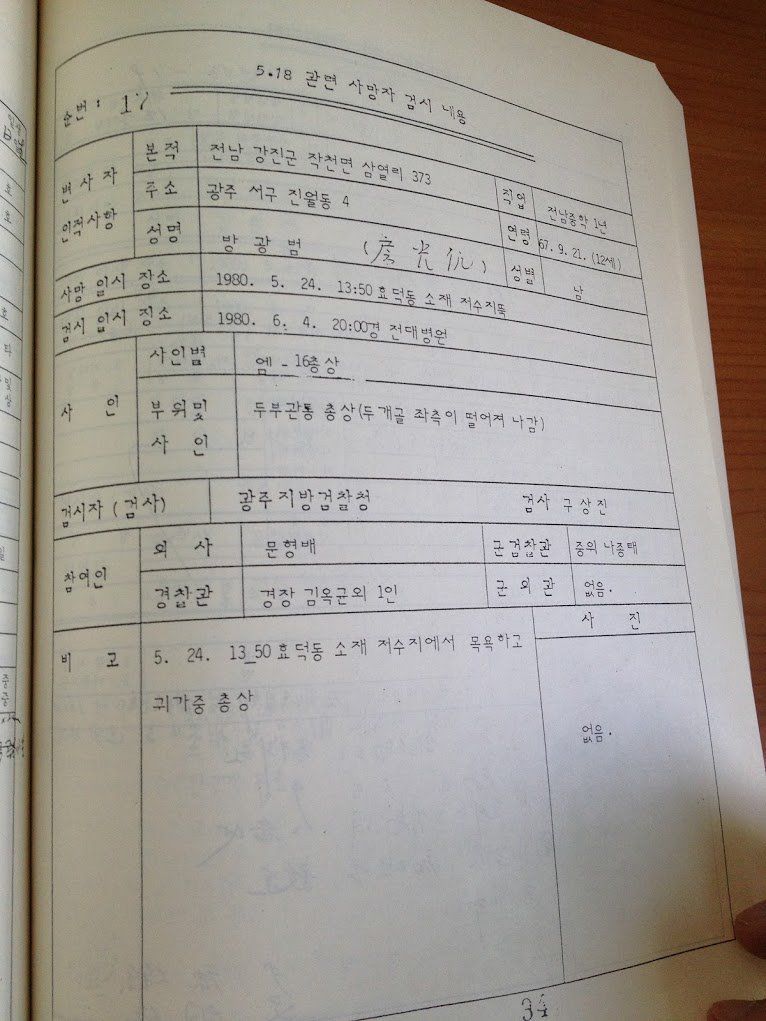 5.18 관련 사망자 검시 내용
순번 : 17
변사자 인적사항
본적 전남 강진군 작천면 삼열리 373
직업 전남중학 1년
주소 광주 서구 진월동 4
연령 67. 9. 21. (12세)
성명 방 광 범
성별 남
사망 일시 장소 1980. 5. 24. 13:50 효덕동 소재 저수지뚝
검시 일시 장소 1980. 6. 4. 20:00경 전대병원
사 인
사인별 엠 - 16총상
부위및 사 인 두부관통 총상(두개골 좌측이 떨어져 나감)
검시자 (검사) 광주지방검찰청 검사 구상진
참여인
의 사 문형배
군검찰관 중위 나종태
경찰관 경장 김옥균외 1인
군 의 관 없음.
비 고
5. 24. 13_50 효덕동 소재 저수지에서 목욕하고
귀가중 총상
사 진
없음.
34